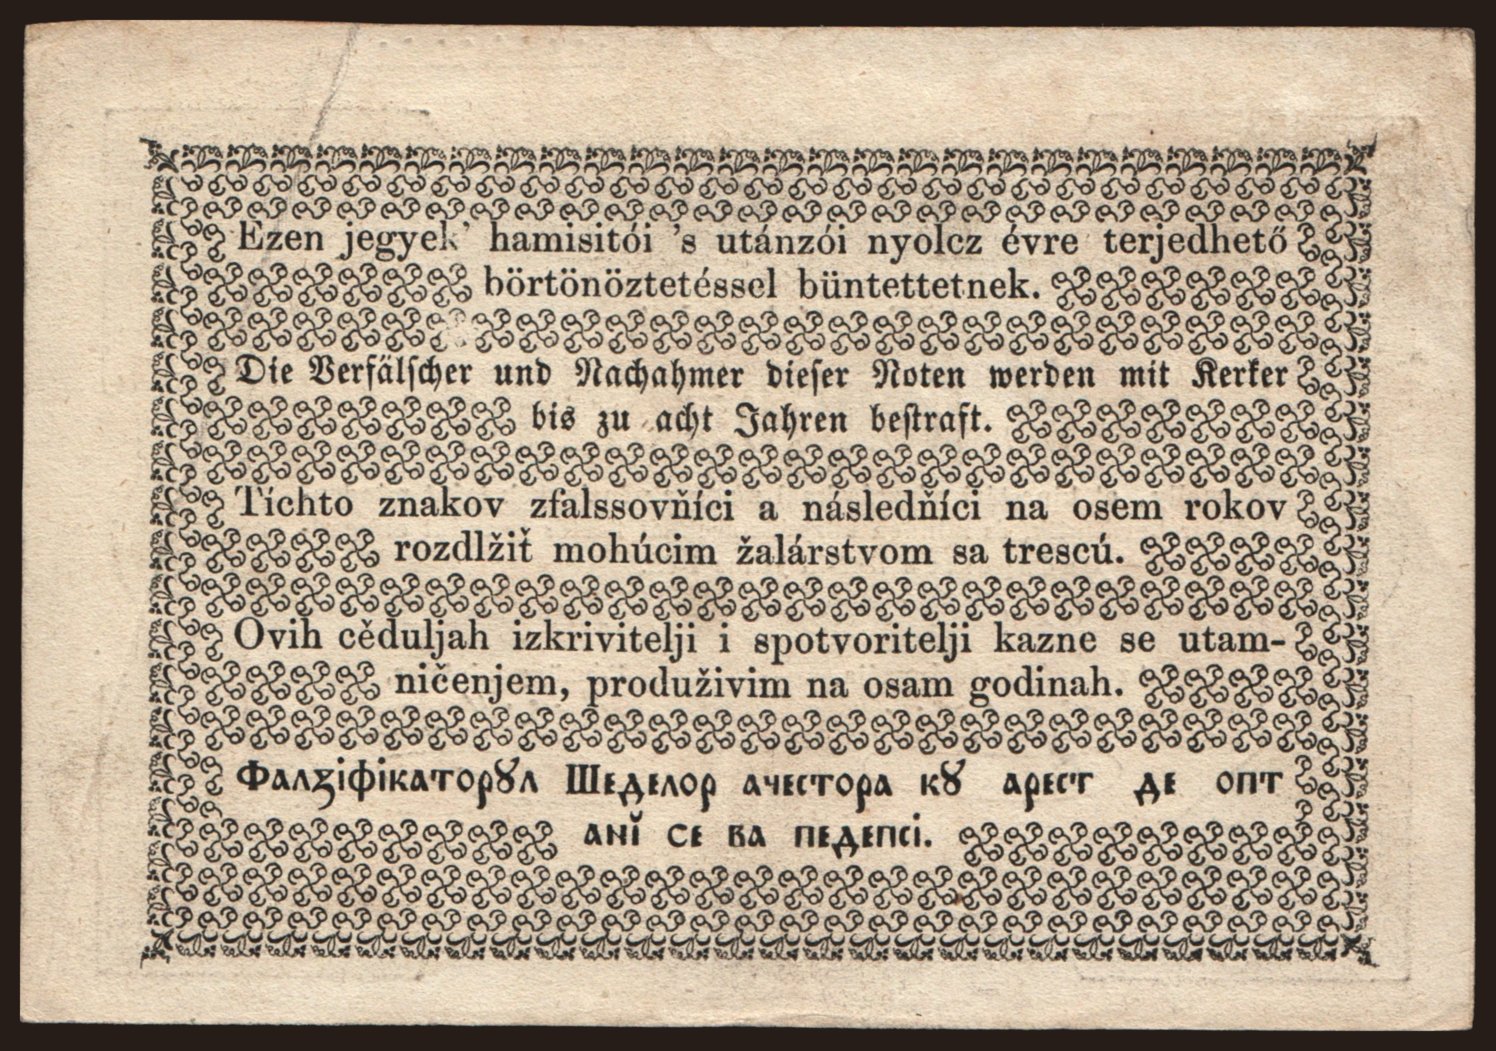 Ezen jegyek' hamisitói 's utánzói nyolcz évre terjedhető
börtönöztetéssel büntettetnek.
Die Verfälscher und Nachahmer dieser Noten werden mit Kerker
bis zu acht Jahren bestraft.
Tíchto znakov zfalssovňíci a následňíci na osem rokov
rozdlžiť mohúcim žalárstvom sa trescú.
Ovih cěduljah izkrivitelji i spotvoritelji kazne se utam-
ničenjem, produživim na osam godinah.
Фалзіфікаторꙋл Шеделор ачестора кꙋ арест де опт
анĭ се ва педепсі.